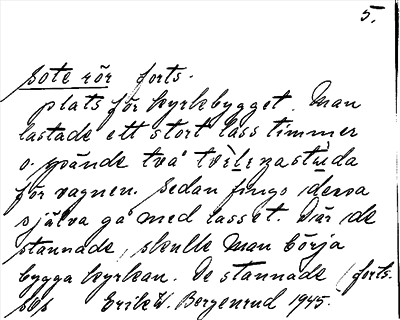 5.
sote rör forts.
plats för kyrkbygget. Man
lastade ett stort lass timmer
o. spände två
för vagnen. Sedan fingo dessa
själva gå med lasset. Där de
stannade, skulle man börja
bygga kyrkan. De stannade (forts.
Erik W. Bergenrud 1945.